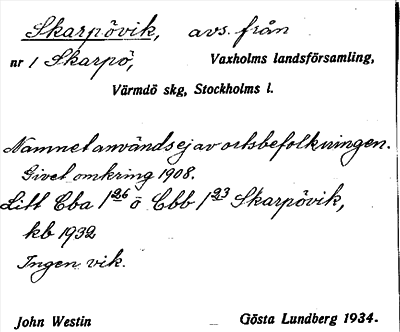 Skarpövik, avs. från
nr 1 Skarpö, Vaxholms landsförsamling,
Värmdö skg, Stockholms l.
Namnet användes ej av ortsbefolkningen.
Givet omkring 1908.
Litt Cba 1²⁶ ö Cbb 1²³ Skarpövik,
kb 1932
Ingen vik.
John Westin Gösta Lundberg 1934.